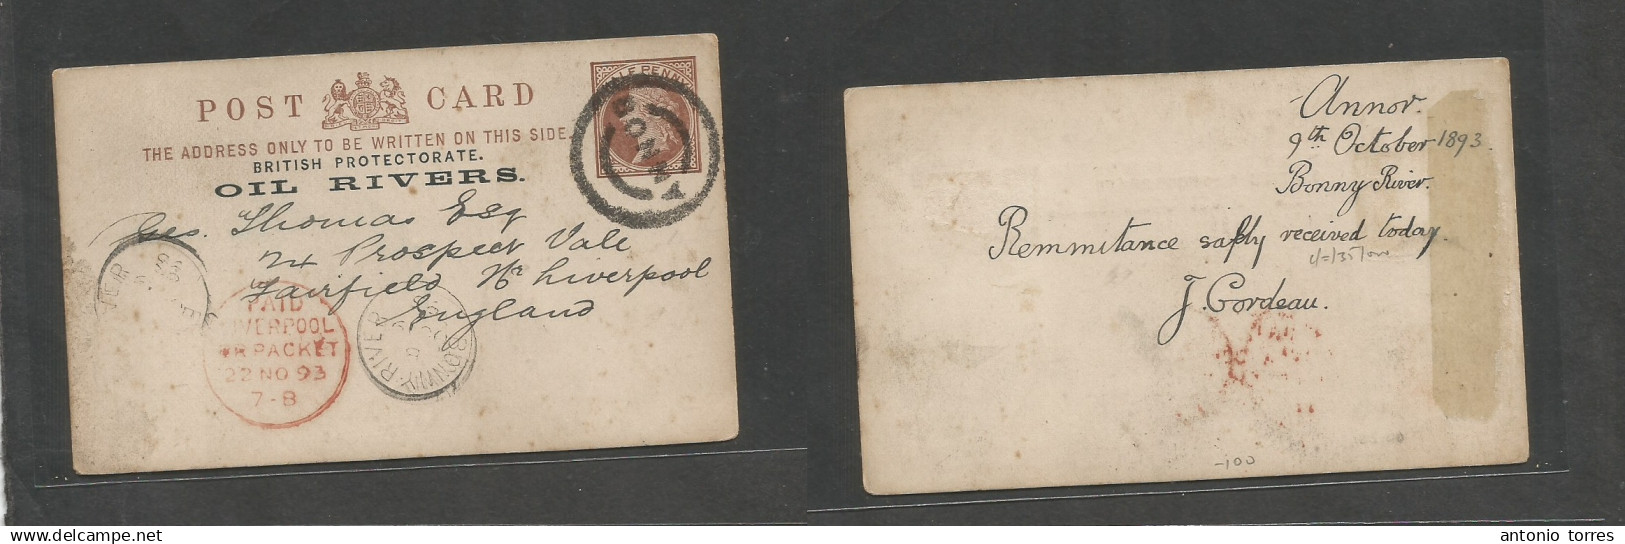 POST CARD
THE ADDRESS ONLY TO BE WRITTEN ON THIS SIDE.
BRITISH PROTECTORATE.
OIL RIVERS.
Geo. Thomas Esq
24 Prospect Vale
Fairfield Nr Liverpool
England
PAID
LIVERPOOL
BR PACKET
22 NO 93
7-8
BONNY RIVER
Annor.
9th October 1893.
Bonny River.
Remmitance safly received today.
J. Gordeau.
-100
antonio torres